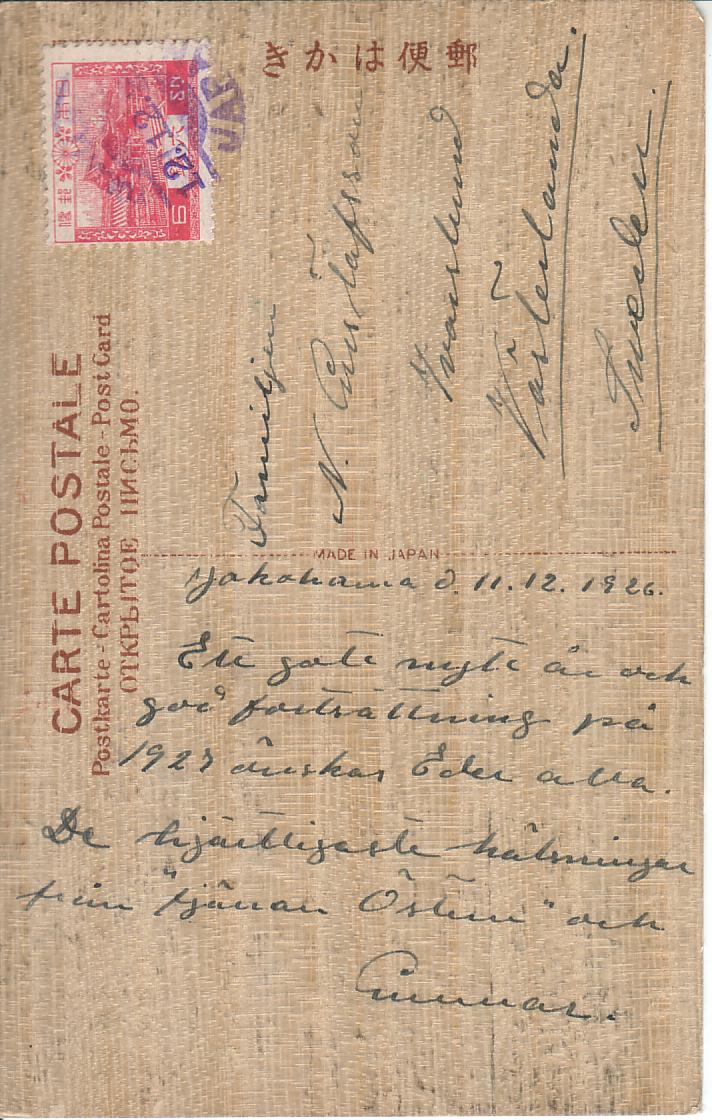 きかは便郵
CARTE POSTALE
Postkarte-Cartolina Postale-Post Card
ОТКРЫТОЕ ПИСЬМО.
JAP
12.12
6
Familjen
N. Gustafsson
Värterlanda.
Sweden.
MADE IN JAPAN
Yokohama d. 11.12.1926.
Ett gott nytt år och
god fortsättning på
1927 önskas Eder alla.
De hjärtligaste hälsningar
från "fjärran Östern" och
Gunnar.